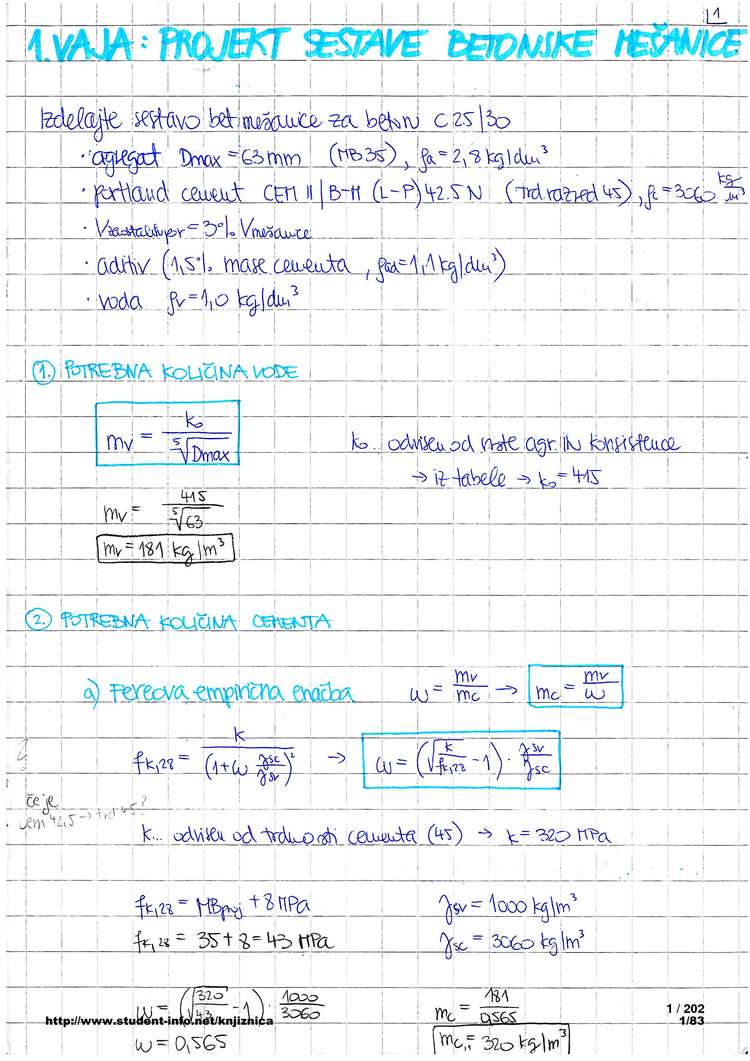 1
1. VAJA: PROJEKT SESTAVE BETONSKE MEŠANICE
Izdelajte sestavo bet mešanice za beton C 25/30
· agregat Dmax = 63 mm (MB 35), ρa = 2,8 kg/dm³
· portland cement CEM II/B-M (L-P) 42.5 N (trd. razred 45), ρc = 3060 kg/m³
· Vzaostalih por = 3% Vmešanice
· aditiv (1,5% mase cementa, ρad = 1,1 kg/dm³)
· voda ρv = 1,0 kg/dm³
1. POTREBNA KOLIČINA VODE
mv = k₀ / ⁵√Dmax
k₀ ... odvisen od vrste agr. in konsistence
→ iz tabele → k₀ = 415
mv = 415 / ⁵√63
mv = 181 kg/m³
2. POTREBNA KOLIČINA CEMENTA
a) Fereova empirična enačba ω = mv/mc → mc = mv/ω
fk,28 = k / (1+ω γsc/γsv)² → ω = (√(k/fk,28) - 1) · γsv/γsc
če je
cem 42,5 → trd 45?
k... odvisen od trdnosti cementa (45) → k = 320 MPa
fk,28 = MBproj + 8 MPa γsv = 1000 kg/m³
fk,28 = 35 + 8 = 43 MPa γsc = 3060 kg/m³
ω = (√(320/43) - 1) · 1000/3060 mc = 181/0,565
http://www.student-info.net/knjiznica
1 / 202
1/83
ω = 0,565 mc,1 = 320 kg/m³